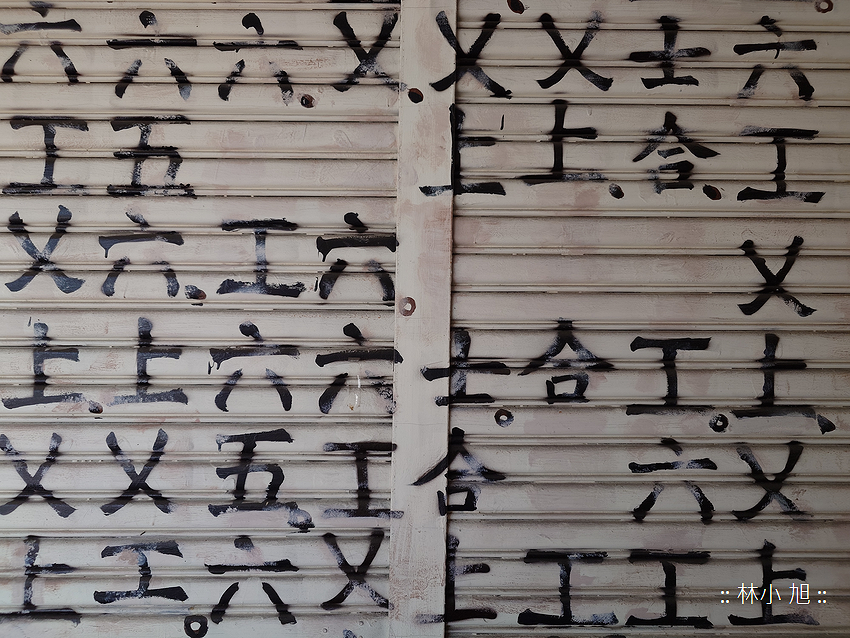 六工乂上乂上
士合工六工
乂上合工
乂上士合上
乂六六工乂
六工六五六
六五六上乂工
六工乂上乂上
:: 林小旭 ::